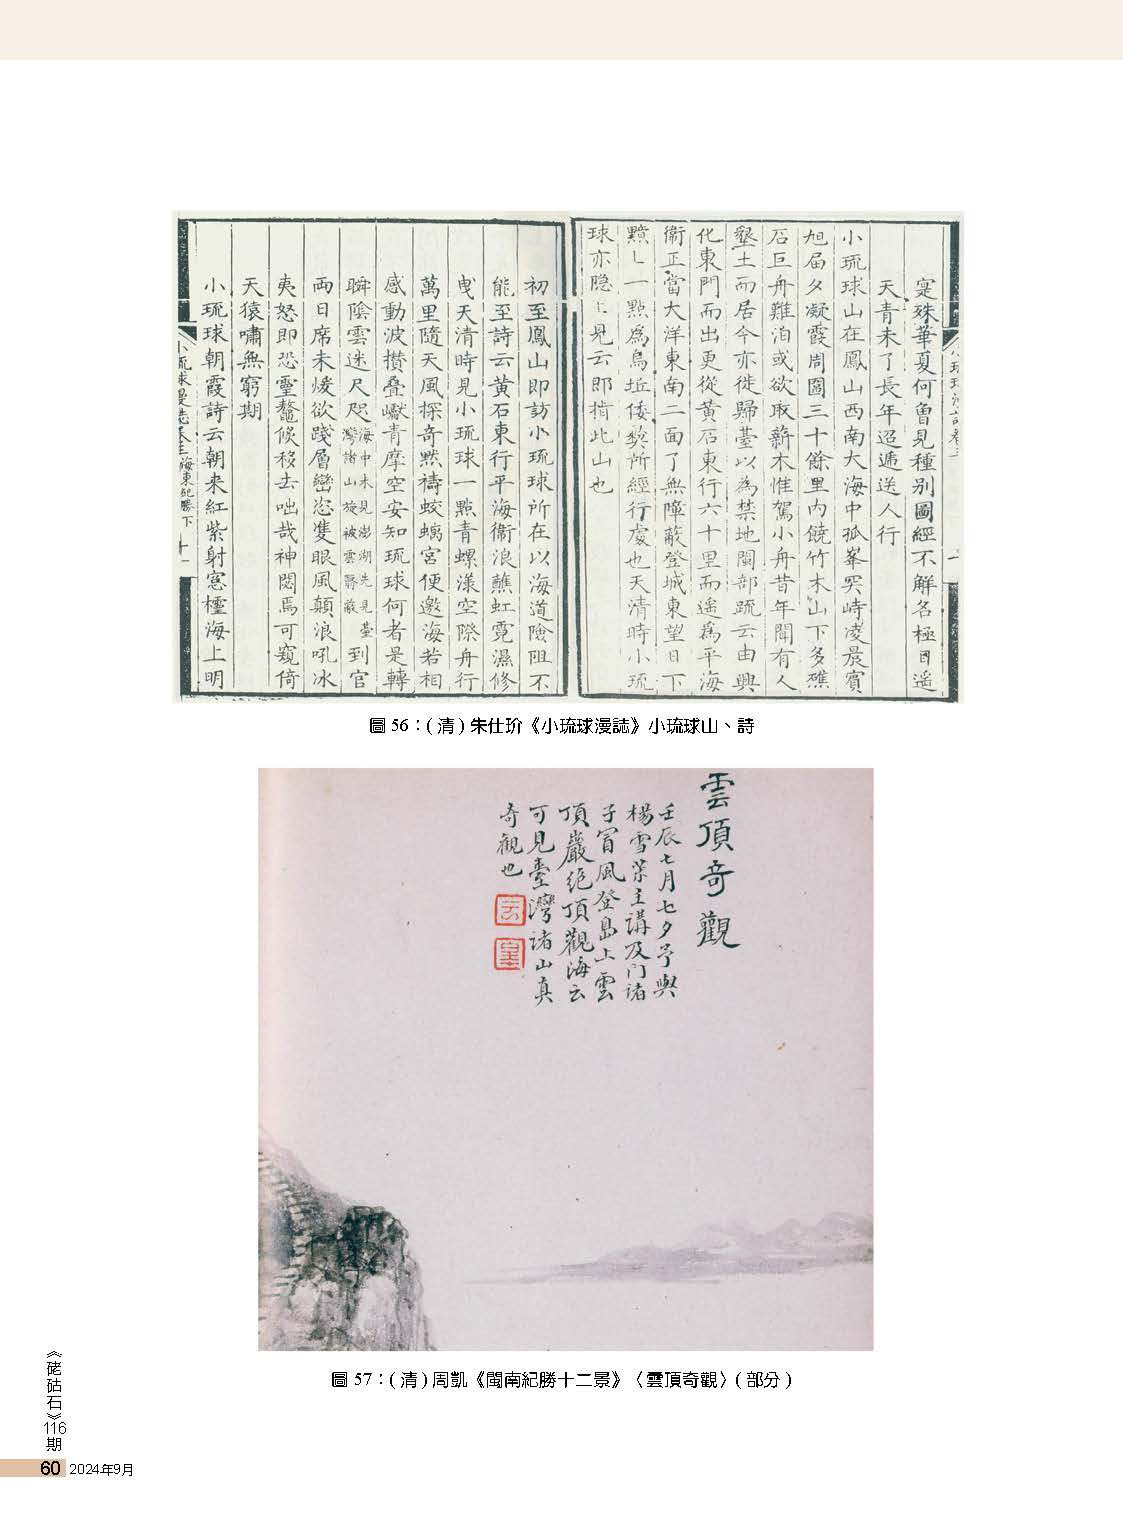 寔殊華夏何曾見種别圖經不解名極目遥
天青未了長年迢遞送人行
小琉球山在鳳山西南大海中孤峯突峙凌晨賓
旭届夕凝霞周圍三十餘里内饒竹木山下多礁
石巨舟難泊或欲取薪木惟駕小舟昔年聞有人
墾土而居今亦徙歸臺以為禁地閩部疏云由興
化東門而出更從黄石東行六十里而遥為平海
衞正當大洋東南二面了無障蔽登城東望日下
黯黯一點為烏坵倭葵所經行處也天清時小琉
球亦隐隐見云即指此山也
初至鳳山即訪小琉球所在以海道險阻不
能至詩云黄石東行平海衞浪蘸虹霓濕修
曳天清時見小琉球一點青螺漾空際舟行
萬里隨天風探奇黙禱蛟螭宮便邀海若相
感動波攢叠巘青摩空安知琉球何者是轉
瞬陰雲迷尺咫海中未見澎湖先見臺灣諸山旋被雲霧蔽到官
兩日席未煖欲踐層巒恣雙眼風顛浪吼冰
夷怒即恐靈鼇倏移去咄哉神閟焉可窺倚
天猿嘯無窮期
小琉球朝霞詩云朝来紅紫射窓櫺海上明
小琉球漫誌卷 海東紀勝下 十一
圖 56：( 清 ) 朱仕玠《小琉球漫誌》小琉球山、詩
雲頂奇觀
壬辰七月七夕予與
楊雪茮主講及门諸
子冒風登島上雲
頂巖絶頂觀海云
可見臺灣諸山真
奇觀也
圖 57：( 清 ) 周凱《閩南紀勝十二景》〈雲頂奇觀〉( 部分 )
《硓𥑮石》116期
60 2024年9月